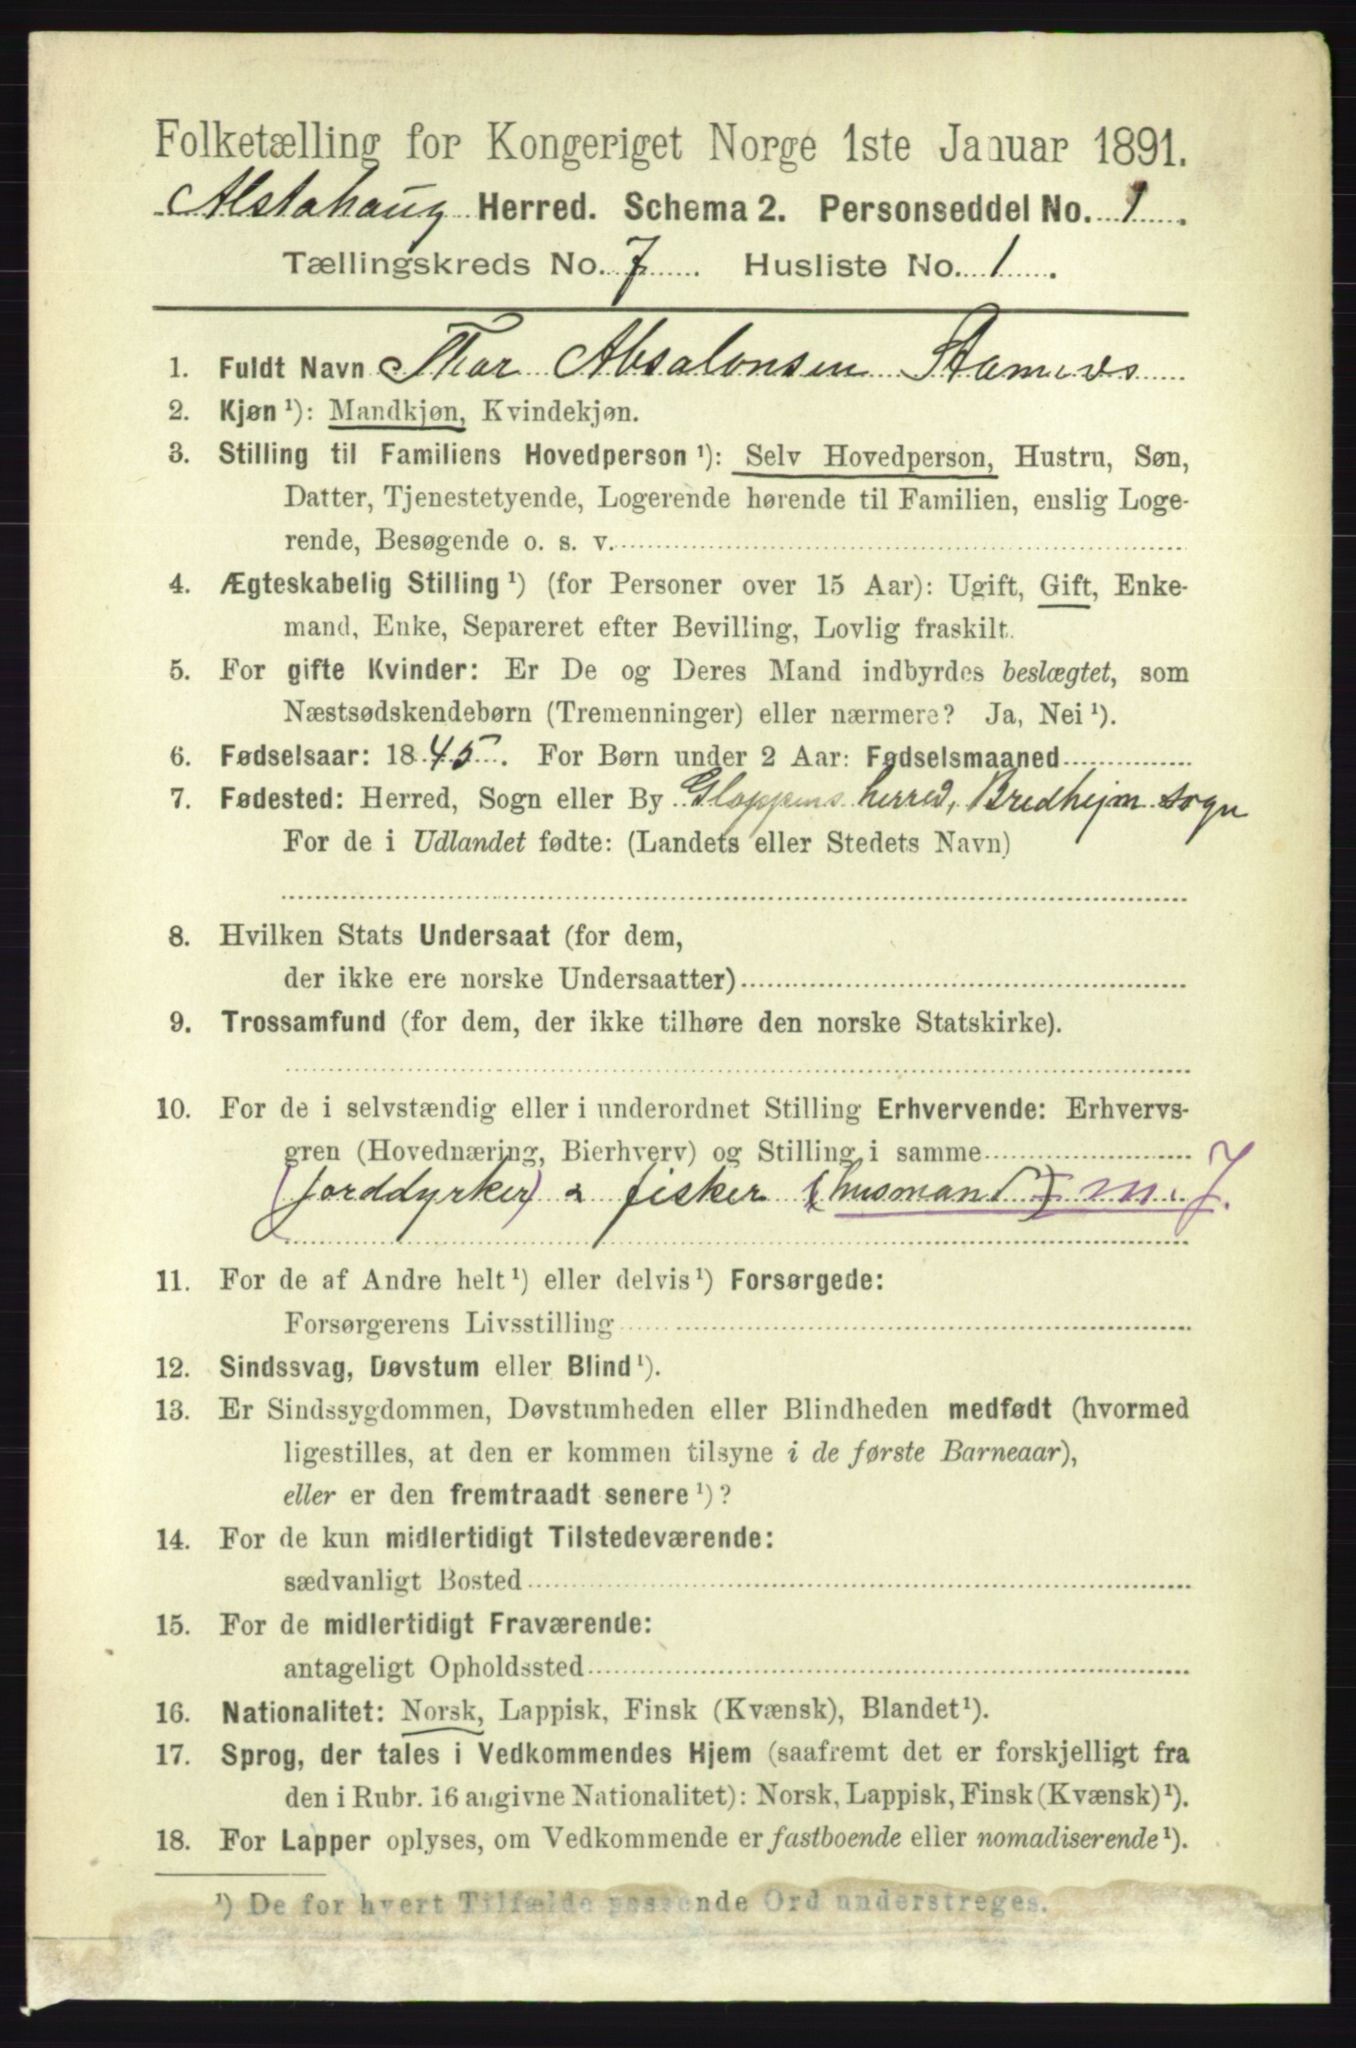 Folketælling for Kongeriget Norge 1ste Januar 1891.
Alstahaug Herred. Schema 2. Personseddel No. 1
Tællingskreds No. 7 Husliste No. 1
1. Fuldt Navn Thor Absalonsen
2. Kjøn ¹): Mandkjøn, Kvindekjøn.
3. Stilling til Familiens Hovedperson ¹): Selv Hovedperson, Hustru, Søn,
Datter, Tjenestetyende, Logerende hørende til Familien, enslig Loge-
rende, Besøgende o. s. v.
4. Ægteskabelig Stilling ¹) (for Personer over 15 Aar): Ugift, Gift, Enke-
mand, Enke, Separeret efter Bevilling, Lovlig fraskilt.
5. For gifte Kvinder: Er De og Deres Mand indbyrdes beslægtet, som
Næstsødskendebørn (Tremenninger) eller nærmere? Ja, Nei ¹).
6. Fødselsaar: 1845. For Børn under 2 Aar: Fødselsmaaned
7. Fødested: Herred, Sogn eller By Gloppens herred, Bredhejm sogn
For de i Udlandet fødte: (Landets eller Stedets Navn)
8. Hvilken Stats Undersaat (for dem,
der ikke ere norske Undersaatter)
9. Trossamfund (for dem, der ikke tilhøre den norske Statskirke).
10. For de i selvstændig eller i underordnet Stilling Erhvervende: Erhvervs-
gren (Hovednæring, Bierhverv) og Stilling i samme
(jorddyrker) & fisker (husmand) m. J.
11. For de af Andre helt ¹) eller delvis ¹) Forsørgede:
Forsørgerens Livsstilling
12. Sindssvag, Døvstum eller Blind ¹).
13. Er Sindssygdommen, Døvstumheden eller Blindheden medfødt (hvormed
ligestilles, at den er kommen tilsyne i de første Barneaar),
eller er den fremtraadt senere ¹)?
14. For de kun midlertidigt Tilstedeværende:
sædvanligt Bosted
15. For de midlertidigt Fraværende:
antageligt Opholdssted
16. Nationalitet: Norsk, Lappisk, Finsk (Kvænsk), Blandet ¹).
17. Sprog, der tales i Vedkommendes Hjem (saafremt det er forskjelligt fra
den i Rubr. 16 angivne Nationalitet): Norsk, Lappisk, Finsk (Kvænsk) ¹).
18. For Lapper oplyses, om Vedkommende er fastboende eller nomadiserende ¹).
¹) De for hvert Tilfælde passende Ord understreges.